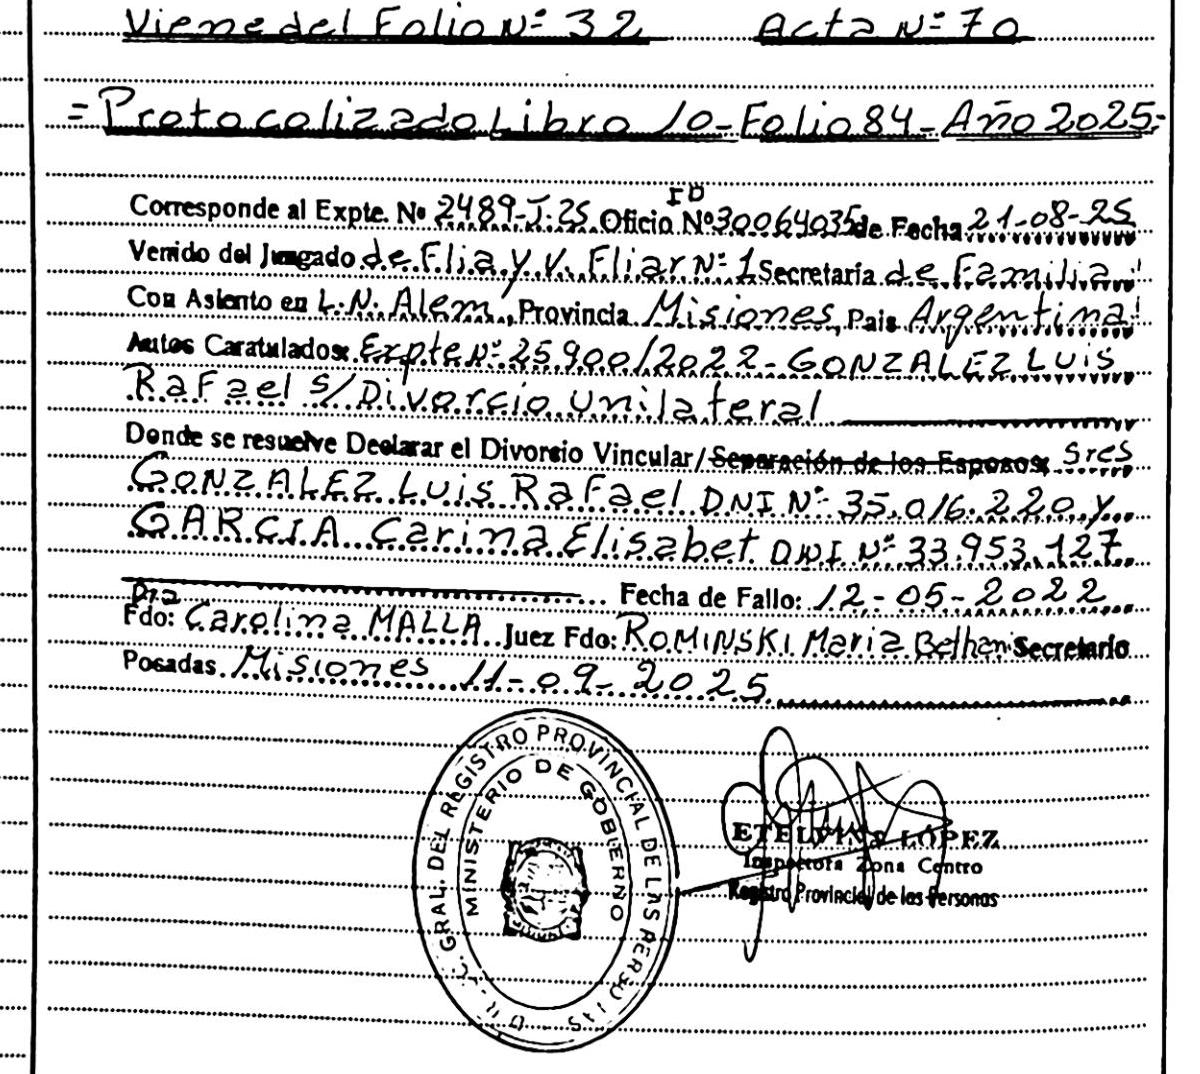 Viene del Folio Nº 32 Acta Nº 70
= Protocolizado Libro 10 - Folio 84 - Año 2025.-
Corresponde al Expte. Nº 2489-J-25 Oficio ID Nº 30064035 de Fecha 21-08-25
Venido del Juzgado de Flia y V. Fliar Nº 1 Secretaría de Familia
Con Asiento en L.N. Alem, Provincia Misiones, Pais Argentina
Autos Caratulados: Expte Nº 25900/2022 - GONZALEZ LUIS
Rafael s/ Divorcio Unilateral
Donde se resuelve Declarar el Divorcio Vincular/Separación de los Esposos: Sres
GONZALEZ LUIS Rafael DNI Nº 35.016.220 y
GARCIA Carina Elisabet DNI Nº 33.953.127
Fecha de Fallo: 12-05-2022
Fdo: Dra Carolina MALLA Juez Fdo: ROMINSKI Maria Bethani Secretario
Posadas. Misiones 11-09-2025
GRAL. DEL REGISTRO PROVINCIAL DE LAS PERSONAS
MINISTERIO DE GOBIERNO
ETELVINA LOPEZ
Inspectora Zona Centro
Registro Provincial de las Personas